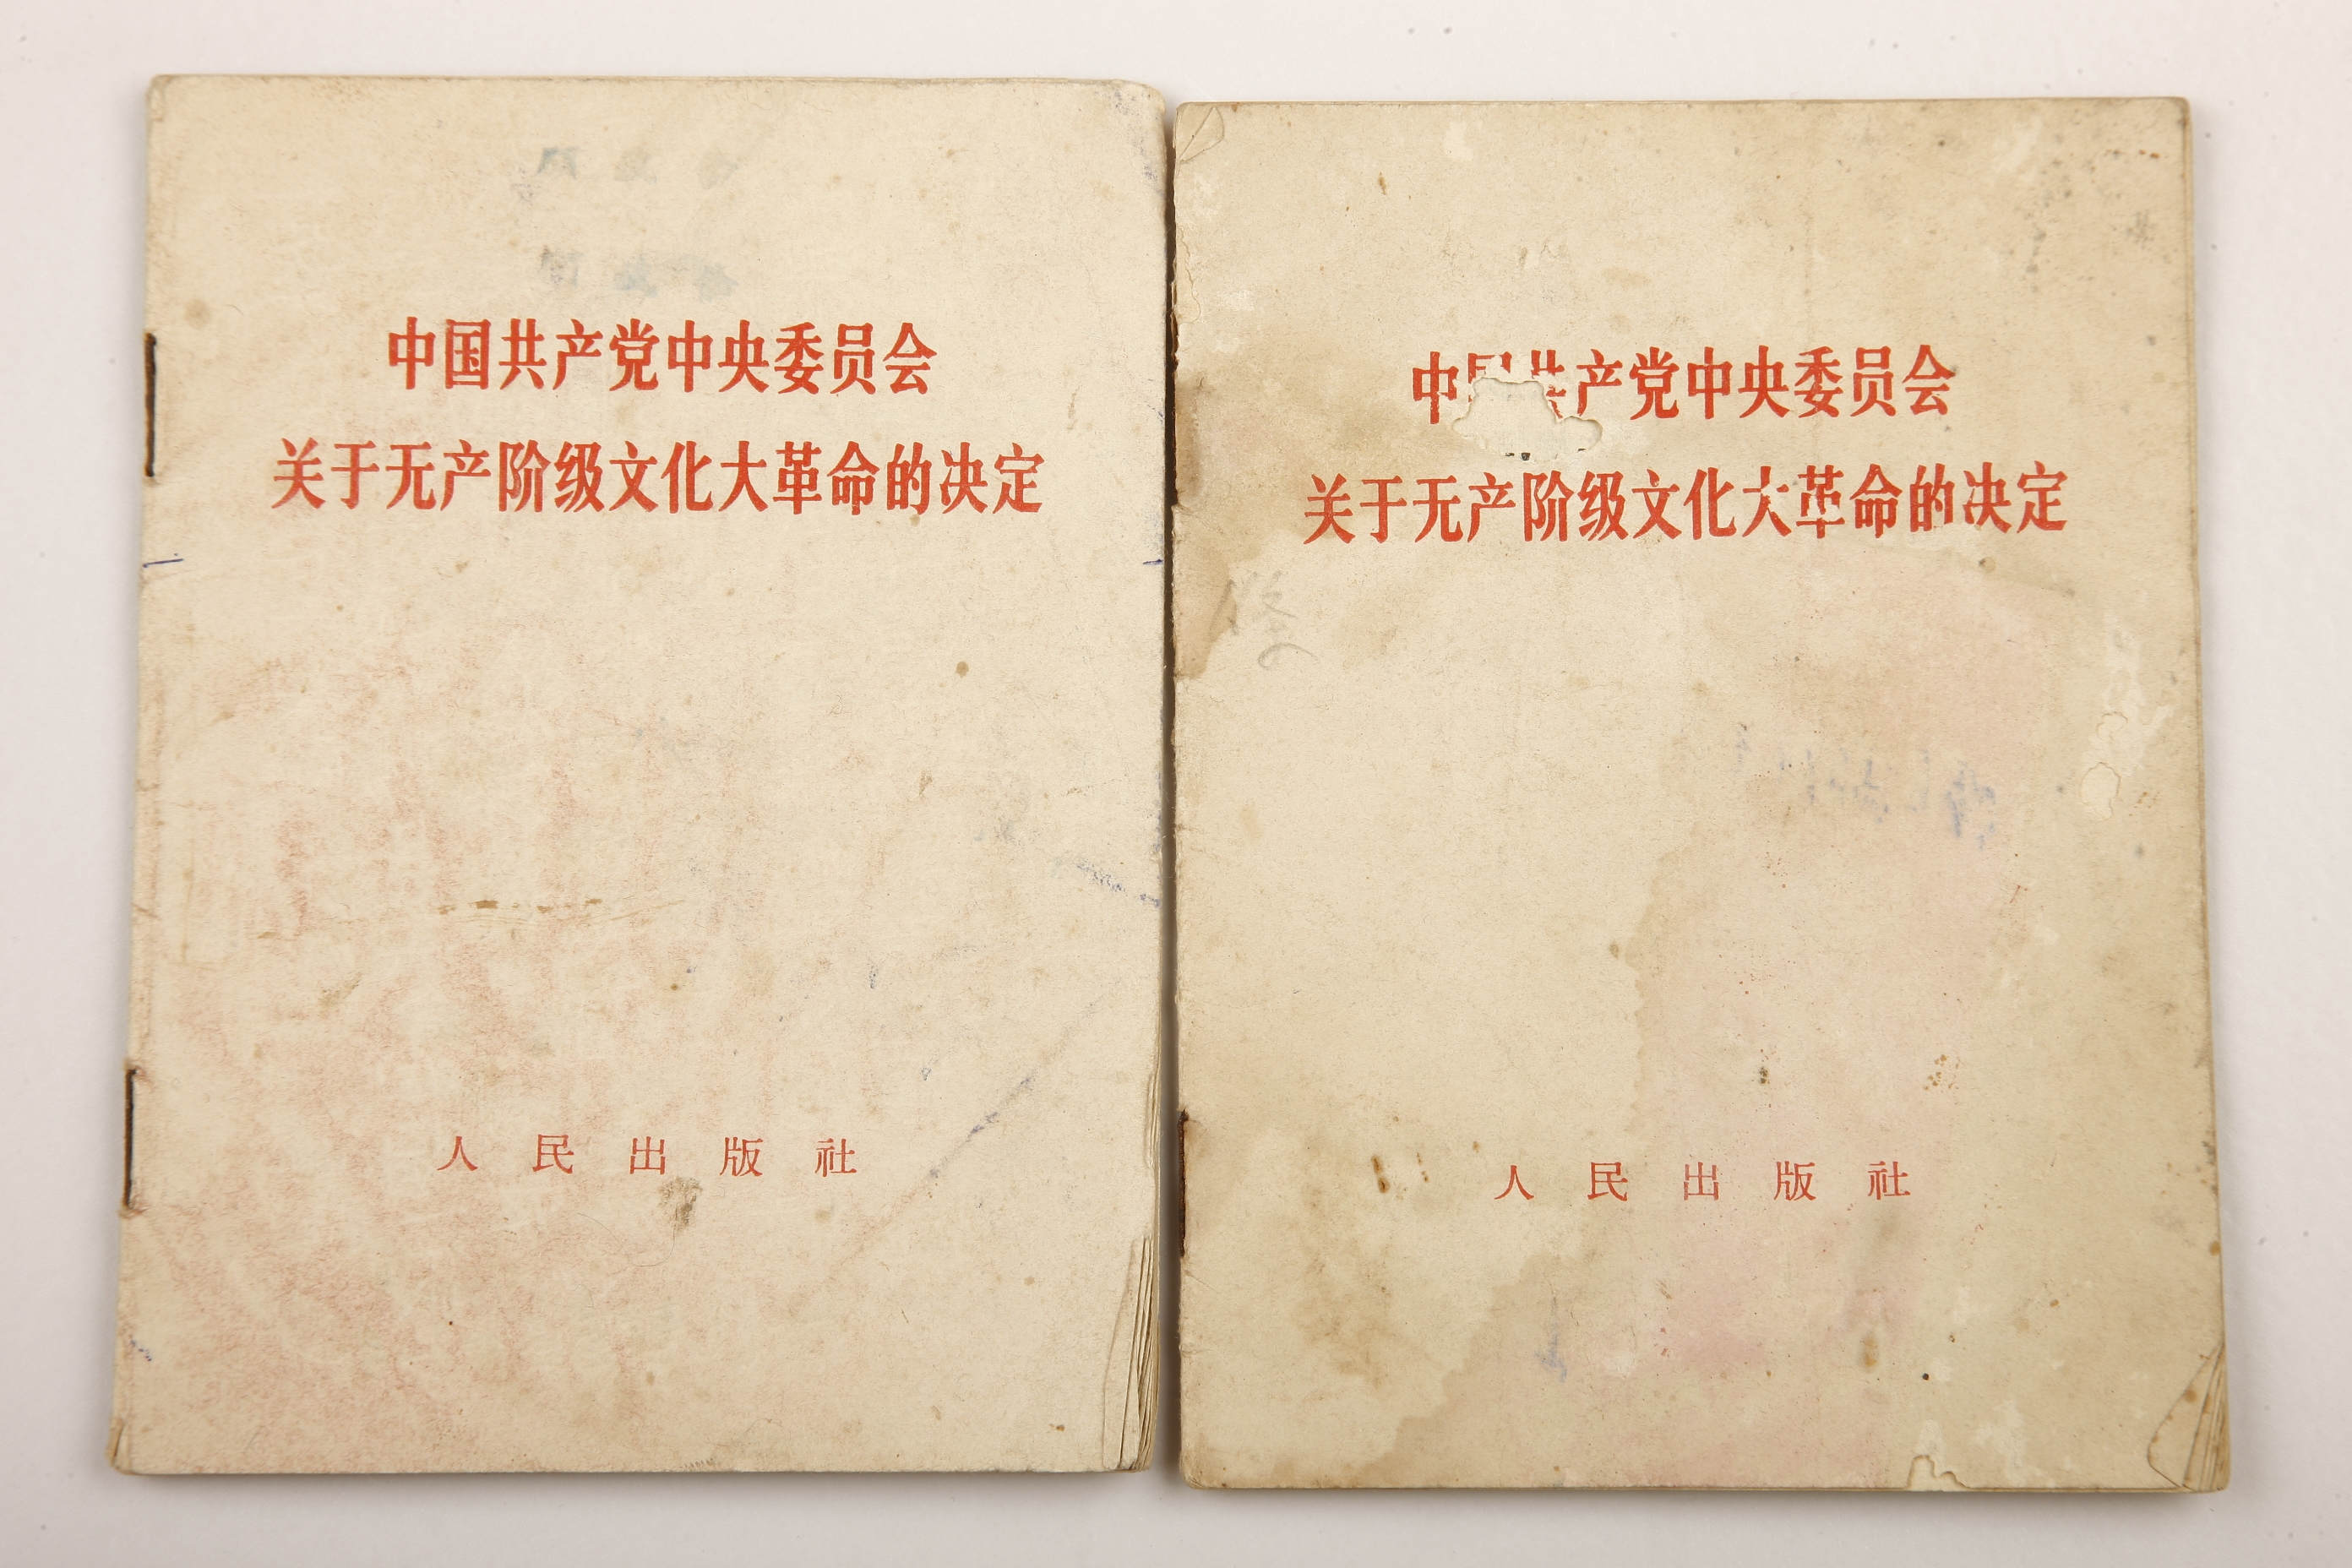 中国共产党中央委员会
关于无产阶级文化大革命的决定
人民出版社
中国共产党中央委员会
关于无产阶级文化大革命的决定
人民出版社